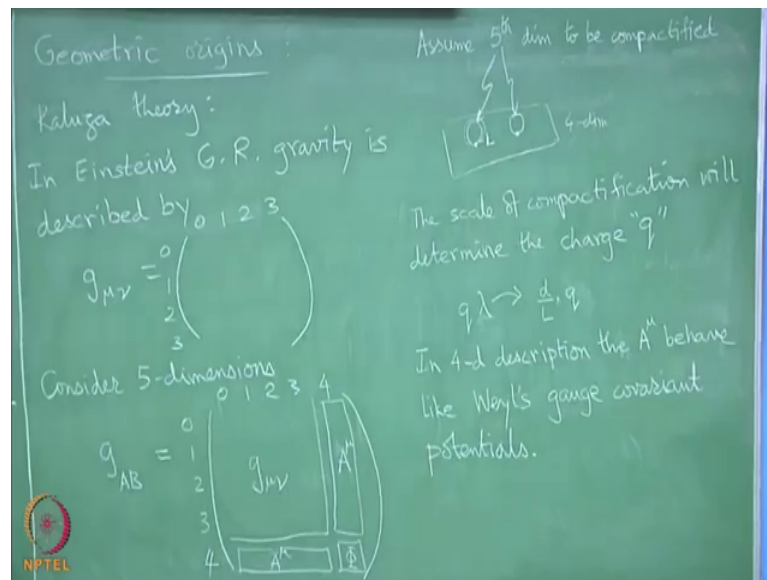 Geometric origins :
Kaluza theory :
In Einstein's G.R. gravity is
described by
0 1 2 3
gμν =
0
1
2
3
Consider 5-dimensions
0 1 2 3 4
g_AB =
0
1
2
3
4
gμν
A^μ
A^μ
Φ
Assume 5th dim to be compactified
L
4-dim
The scale of compactification will
determine the charge "q"
qλ → d/L . q
In 4-d description the A^μ behave
like Weyl's gauge covariant
potentials.
NPTEL